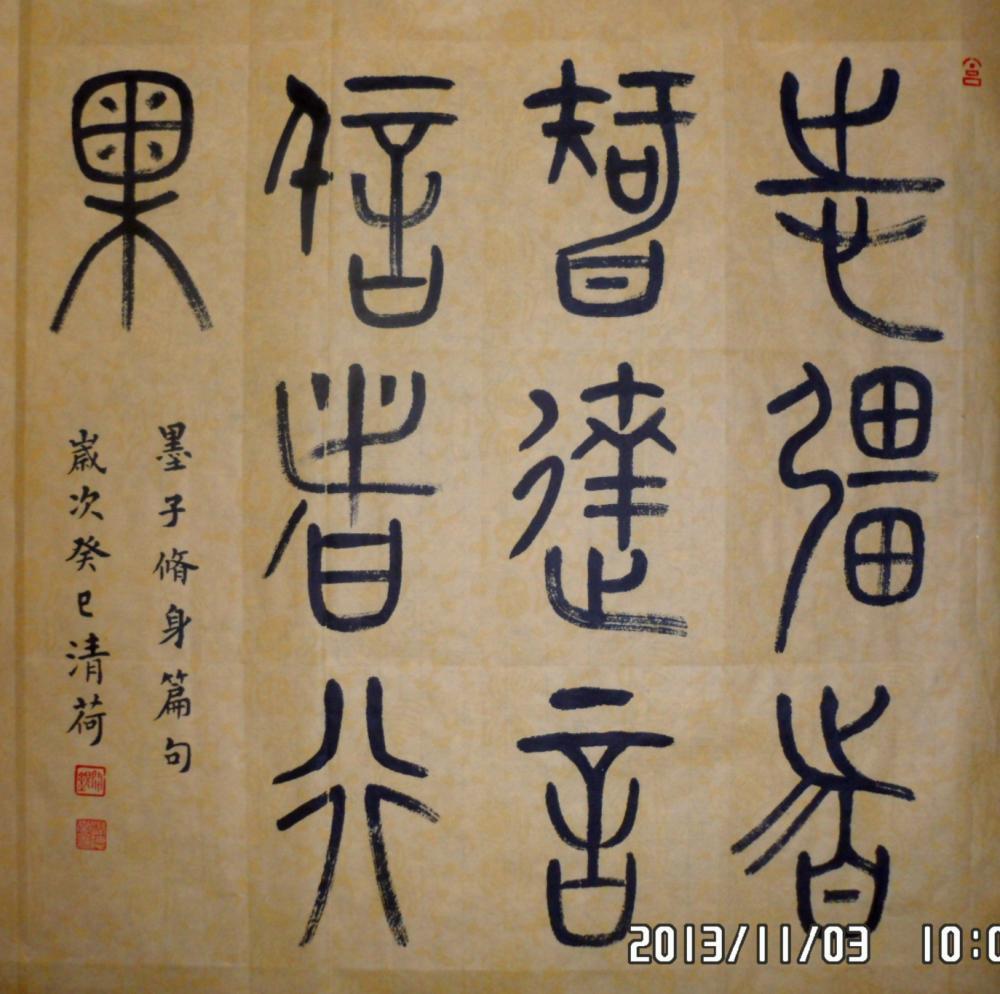 志彊者
智達言
信者行
果
墨子脩身篇句
嵗次癸巳清荷
2013/11/03 10:0